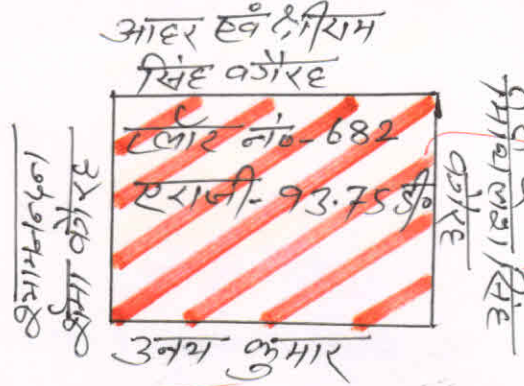 आहर एवं श्रीराम
सिंह वगैरह
प्लाट नं०- 682
एराजी- 93.75 डी०
श्यामनन्दन
शर्मा वगैरह
सिंह
वगैरह
अजय कुमार